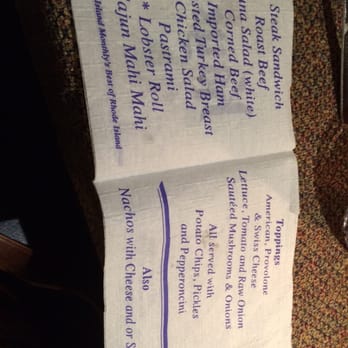 Steak Sandwich
Roast Beef
Salad (white)
Corned Beef
Imported Ham
Turkey Breast
Chicken Salad
Pastrami
* Lobster Roll
Mahi Mahi
Island Monthly's Best of Rhode Island
Toppings
American, Provolone
& Swiss Cheese
Lettuce, Tomato and Raw Onion
Sautéed Mushrooms & Onions
All served with
Potato Chips, Pickles
and Pepperoncini
Also
Nachos with Cheese and or